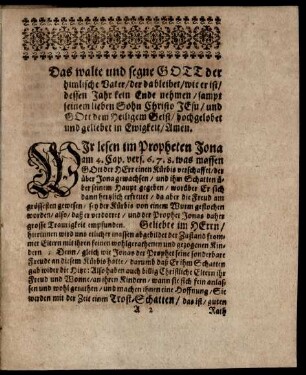 Das walte und segne GOTT der
himlische Vater/ der da bleibet/ wie er ist/
dessen Jahr kein Ende nehmen/ sampt
seinem lieben Sohn Christo JEsu/ und
GOtt dem Heiligem Geist/ hochgelobet
und geliebet in Ewigkeit/ Amen.
WIr lesen im Propheten Jona
am 4. Cap. vers. 6. 7. 8. was massen
GOtt der HErr einen Kürbis verschafft/ der
über Jona gewachsen/ und ihm Schatten ü-
ber seinem Haupt gegeben/ worüber Er sich
dann hertzlich erfreuet/ da aber die Freud am
grössesten gewesen/ sey der Kürbis von einem Wurm gestochen
worden/ also/ daß er verdorret/ und der Prophet Jonas daher
grosse Traurigkeit empfunden. Geliebte im HErrn/
hierinnen wird uns etlicher massen abgebildet der Zustand from-
mer Eltern mit ihren seinen wohlgerathenen und gezogenen Kin-
dern: Denn/ gleich wie Jonas der Prophet seine sonderbare
Freude an diesem Kürbis hatte/ darumb daß Er ihm Schatten
gab wider die Hitze: Also haben auch billig Christliche Eltern ihr
Freud und Wonne/ an ihren Kindern/ wann sie sich fein anlas-
sen und wohl gerathen/ und machen ihnen eine Hoffnung/ Sie
werden mit der Zeit einen Trost-Schatten/ das ist/ guten
A 2 Rath